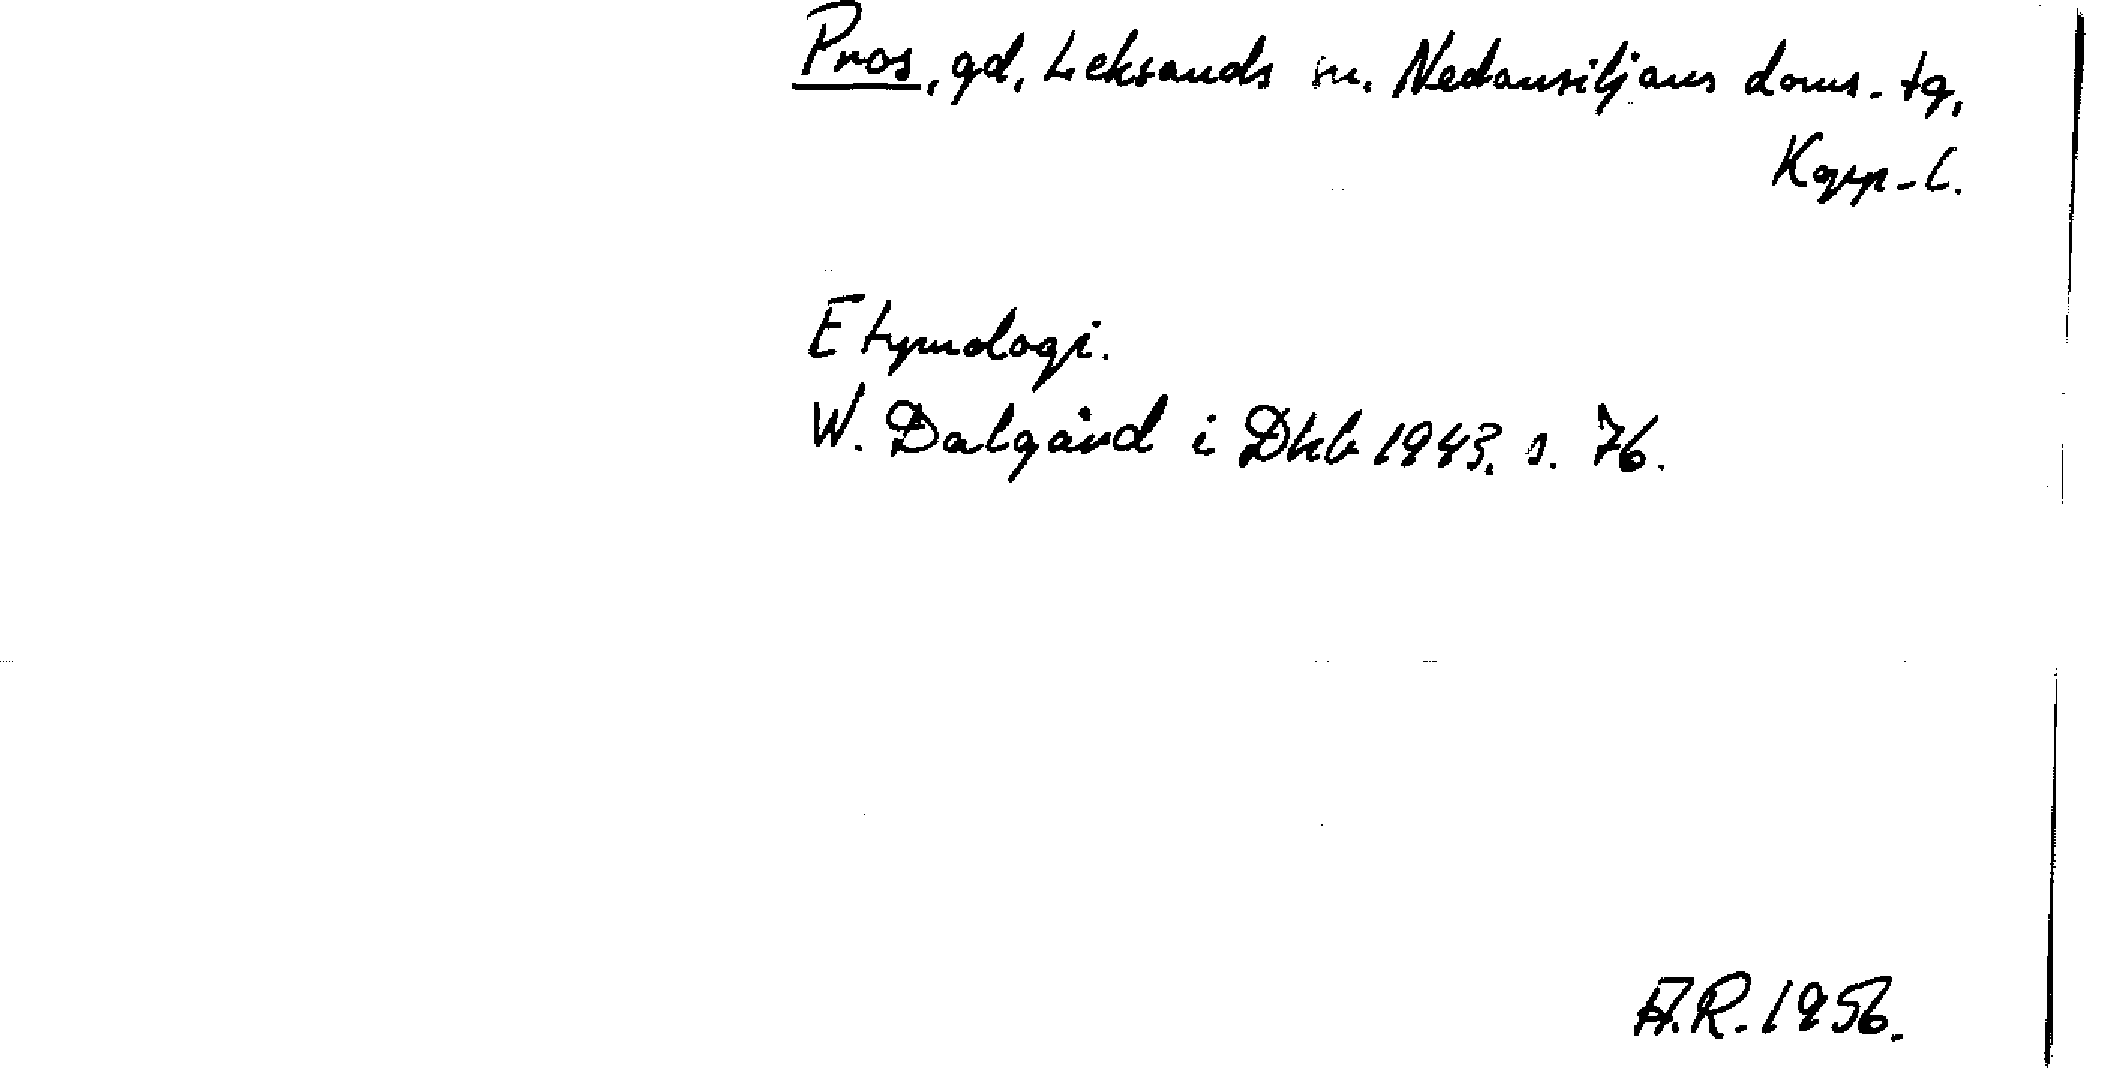 Pros, gd, Leksands sn. Nedansiljans doms. tg,
Kopp-l.
Etymologi.
W. Dalgård i Dhb 1943, s. 76.
A.R. 1956.